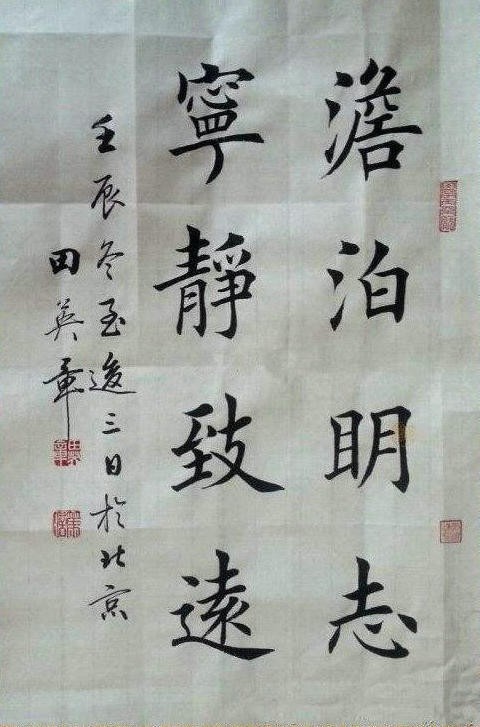 澹泊明志
寧靜致遠
壬辰冬至後三日於北京
田英章